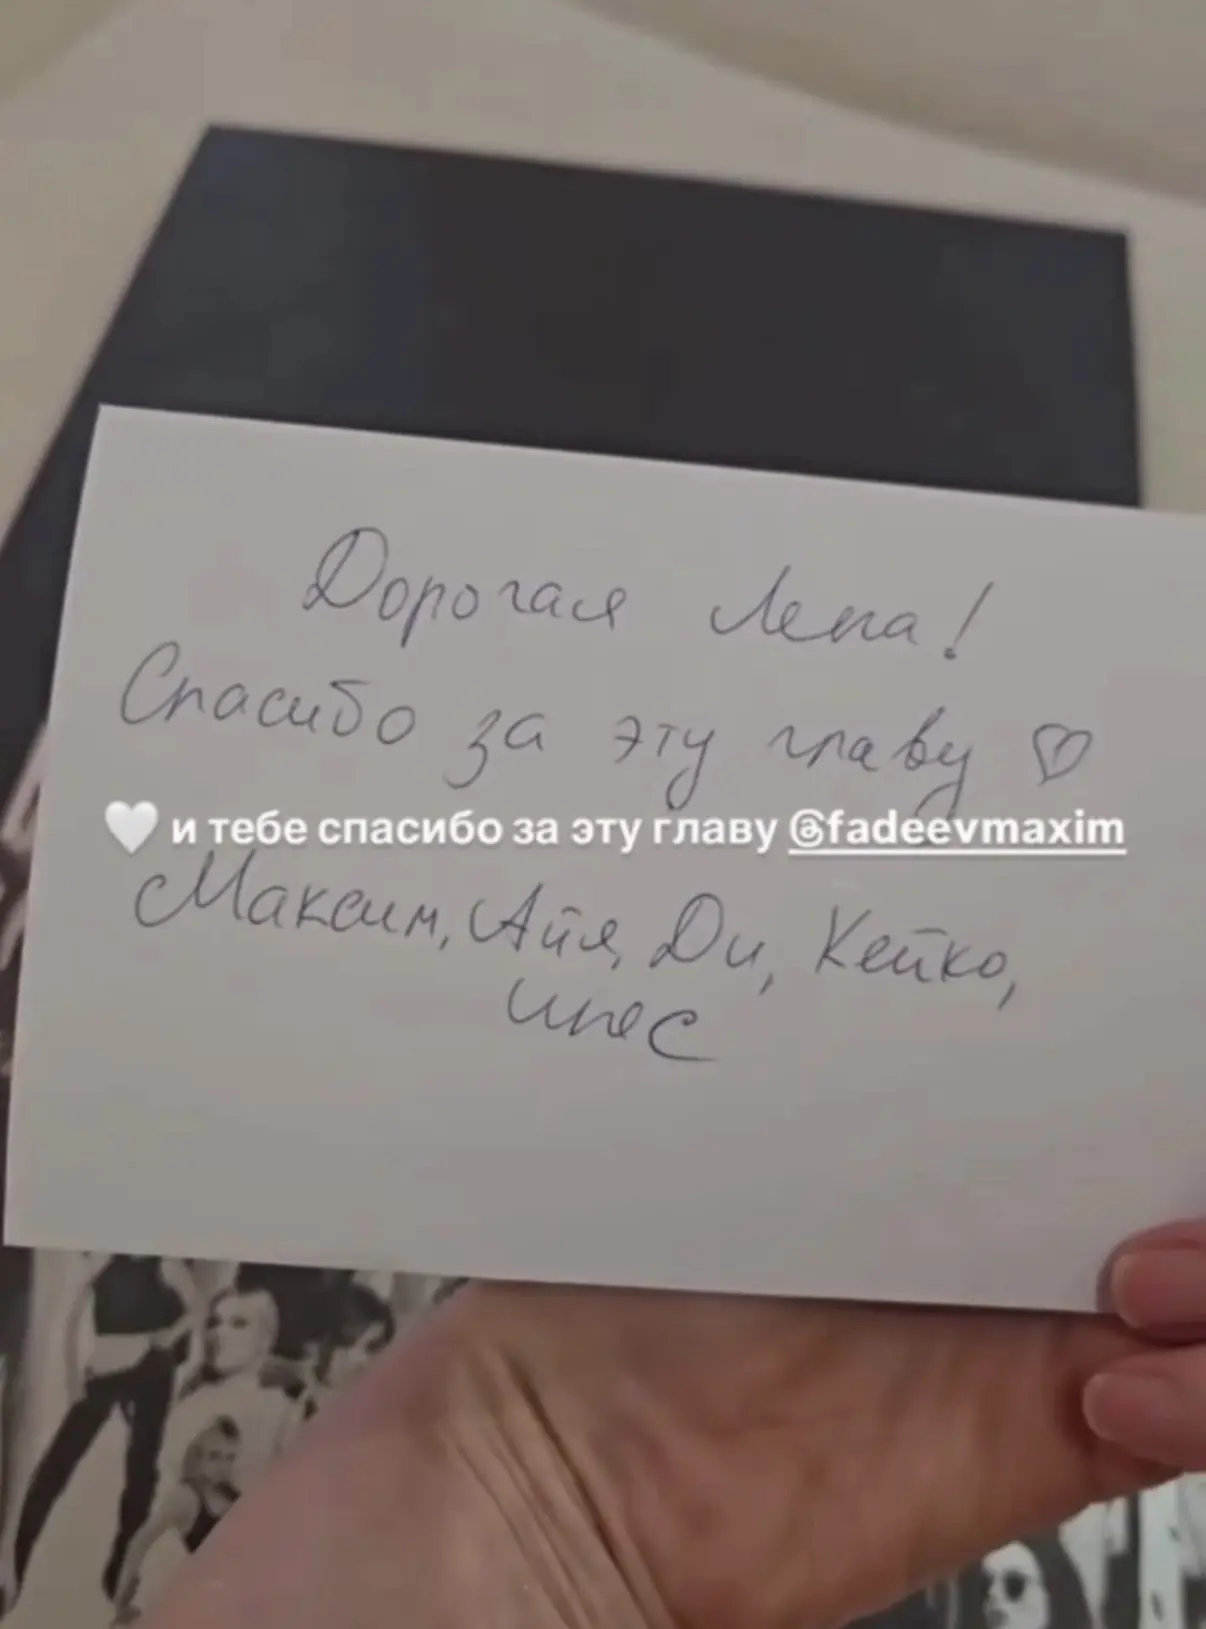 Дорогая Лена!
Спасибо за эту главу ♡
🤍 и тебе спасибо за эту главу @fadeevmaxim
Максим, Айя, Ди, Кейко,
Инес